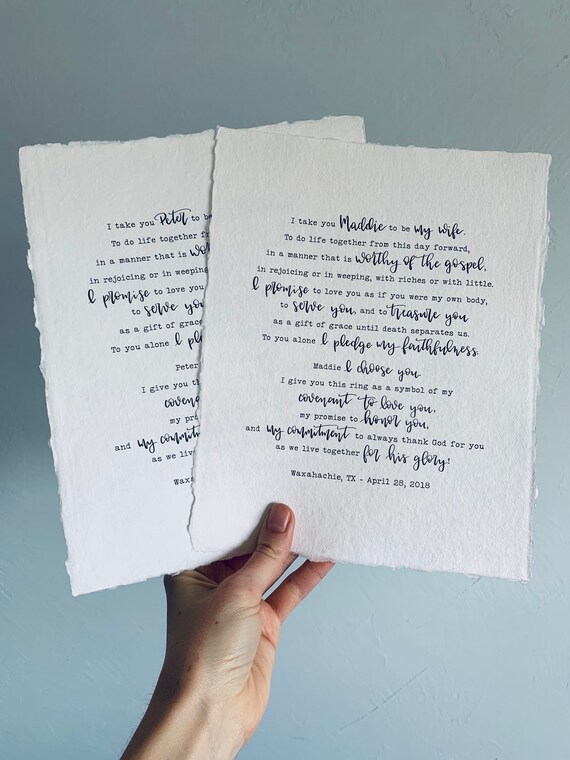 I take you Peter to be
To do life together fr
in a manner that is wor
in rejoicing or in weeping
I promise to love you
to serve you
as a gift of grace
To you alone I pl
Peter
I give you th
coven
my pro
and my commit
as we live
Waxa
I take you Maddie to be my wife.
To do life together from this day forward,
in a manner that is worthy of the gospel,
in rejoicing or in weeping, with riches or with little.
I promise to love you as if you were my own body,
to serve you, and to treasure you
as a gift of grace until death separates us.
To you alone I pledge my faithfulness.
Maddie I choose you.
I give you this ring as a symbol of my
covenant to love you,
my promise to honor you,
and my commitment to always thank God for you
as we live together for his glory!
Waxahachie, TX - April 28, 2018